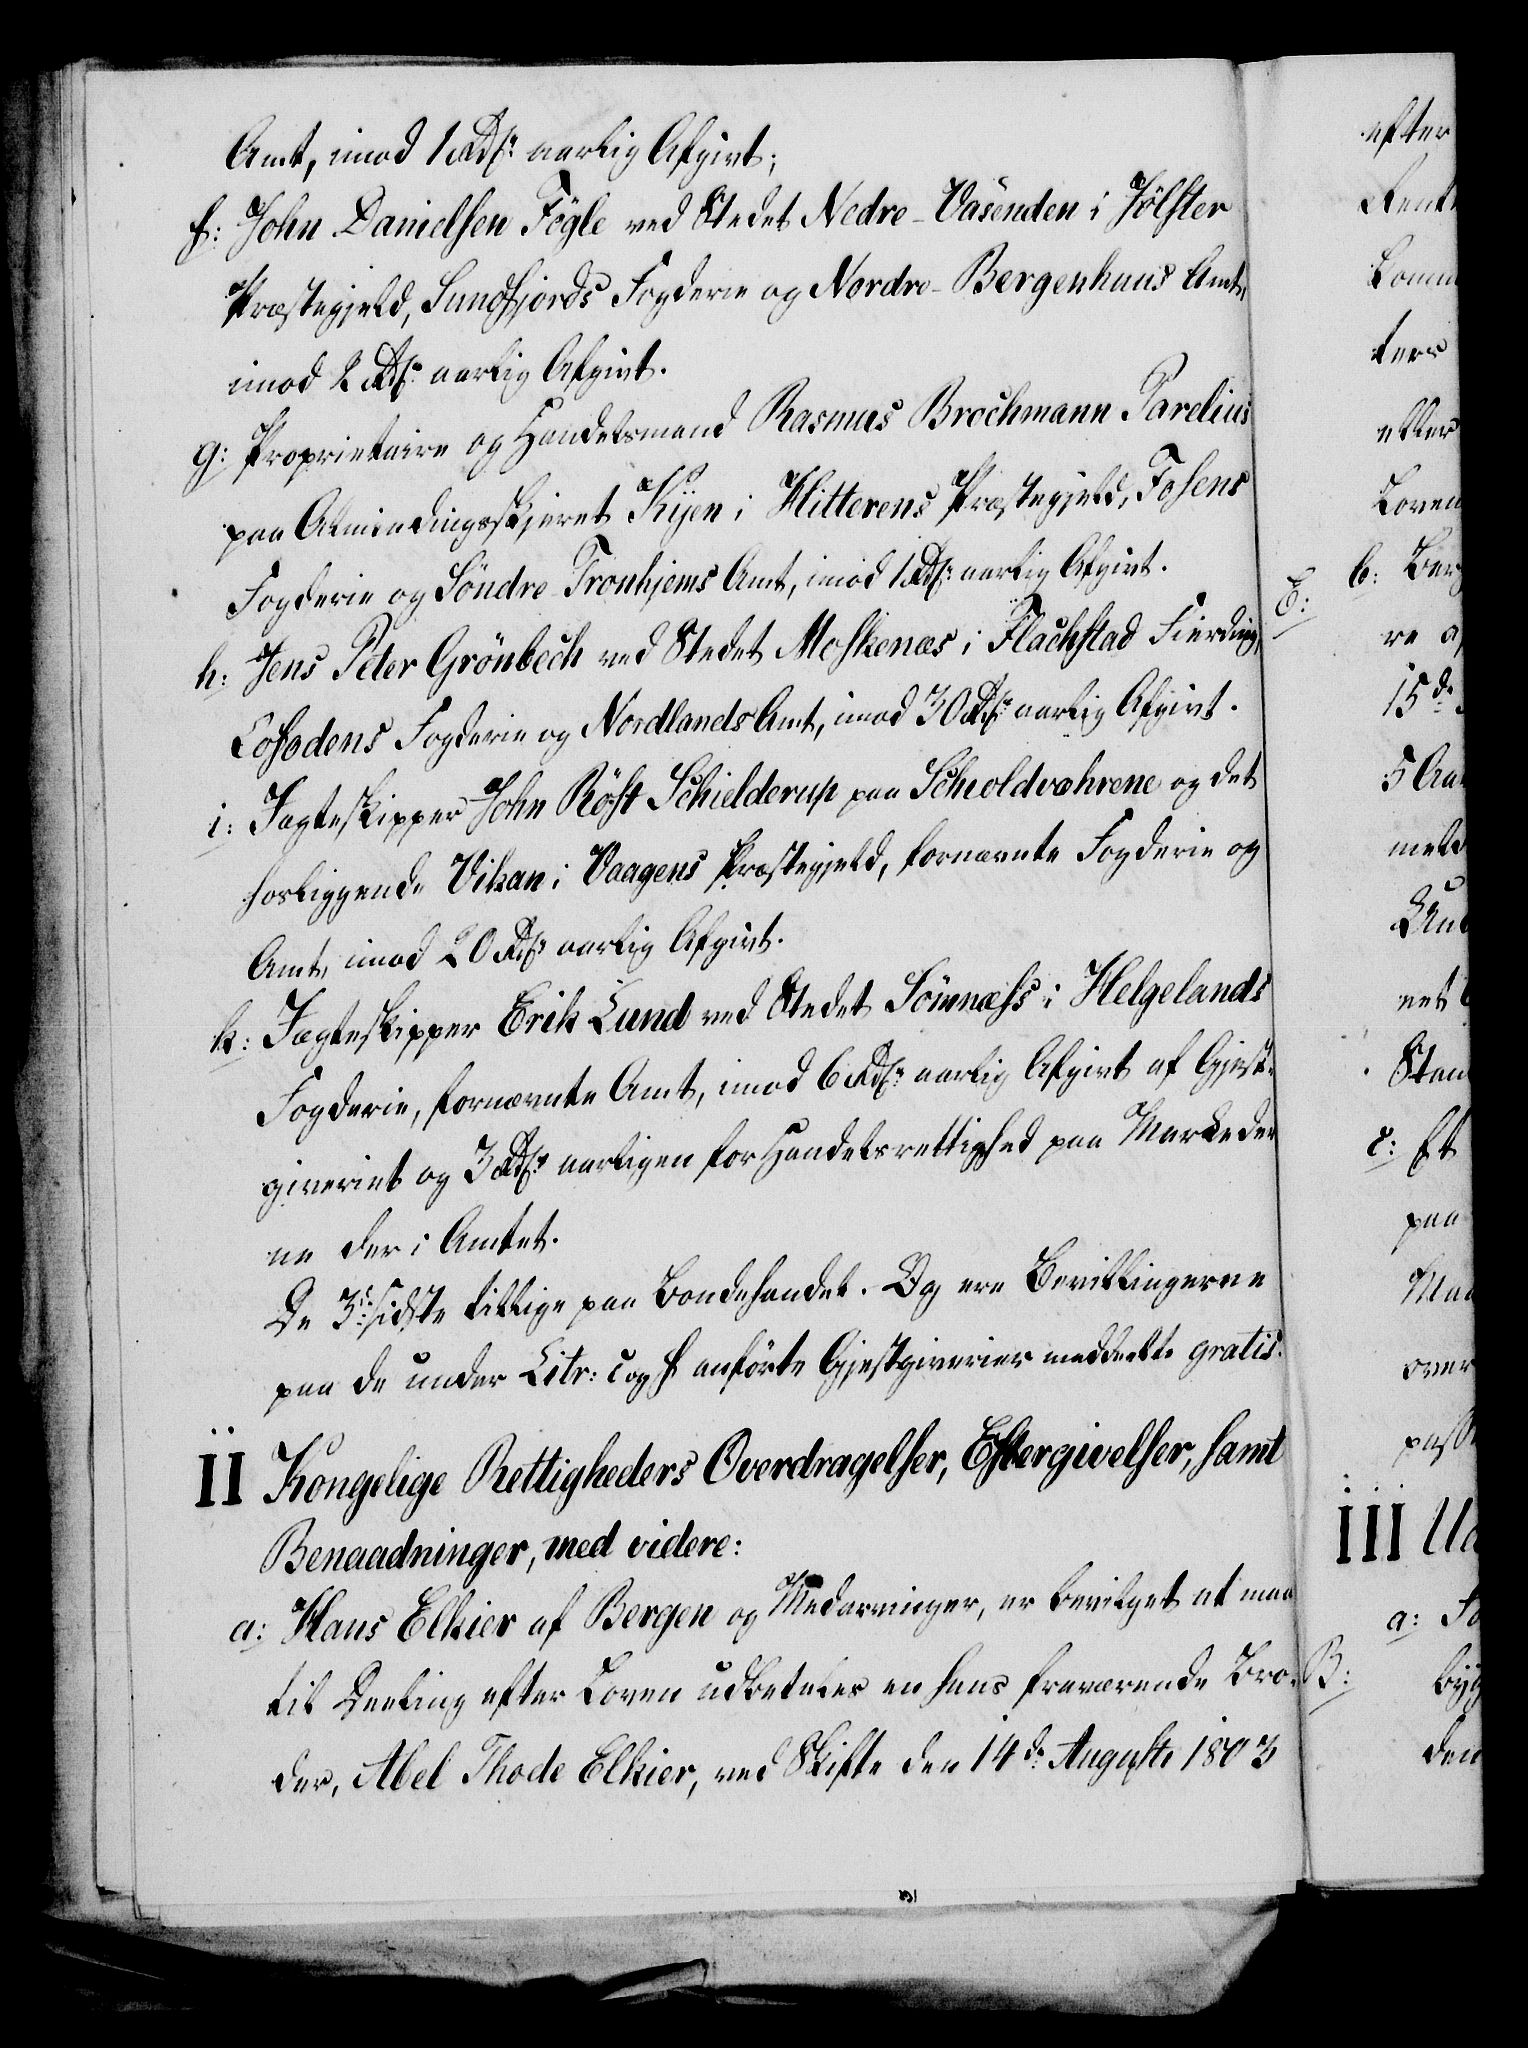 Amt, imod 1 Rdlr: aarlig Afgivt;
f: John Danielsen Fögle ved Stedet Nedre-Vasenden i Jölster
Præstegjeld, Sundfjords Fogderie og Nordre-Bergenhuus Amt,
imod 2 Rdlr: aarlig Afgivt.
g: Proprietaire og Handelsmand Rasmus Brochmann Parelius
paa Almindingsskjæret Kijen i Hitterens Præstegjeld, Fosens
Fogderie og Söndre Tronhjems Amt, imod 1 Rdlr: aarlig Afgivt.
h: Jens Peter Grönbech ved Stedet Moskenæs i Flachstad Fierding,
Lofodens Fogderie og Nordlands Amt, imod 30 Rdlr: aarlig Afgivt.
i: Jagteskipper John Röst Schielderup paa Schioldvæhrene og det
hosliggende Vikan i Vaagens Præstegjeld, fornævnte Fogderie og
Amt, imod 20 Rdlr: aarlig Afgivt.
k: Jagteskipper Erik Lund ved Stedet Sömnæss i Helgelands
Fogderie, fornævnte Amt, imod 6 Rdlr: aarlig Afgivt af Gjest-
giveriet og 3 Rdlr: aarligen for Handelsrettighed paa Markeder
ne der i Amtet.
De 3de sidste tillige paa Bondehandel. Og ere Bevillingerne
paa de under Litr: c og f anförte Gjestgiverier meddeelte gratis.
II Kongelige Rettigheders Overdragelser, Eftergivelser, samt
Benaadninger, med videre:
a: Hans Elkier af Bergen og Medarvinger, er bevilget at maa
til Deeling efter Loven udbetales en hans fraværende Bro-
der, Abel Thode Elkier, ved Skifte den 14de Augusti 1803
efter
Rente
ters
efter
Loven
E:
b: Berg
re
15de
5 Aa
net
c: Et
paa
over
III Ud
a:
B:
den